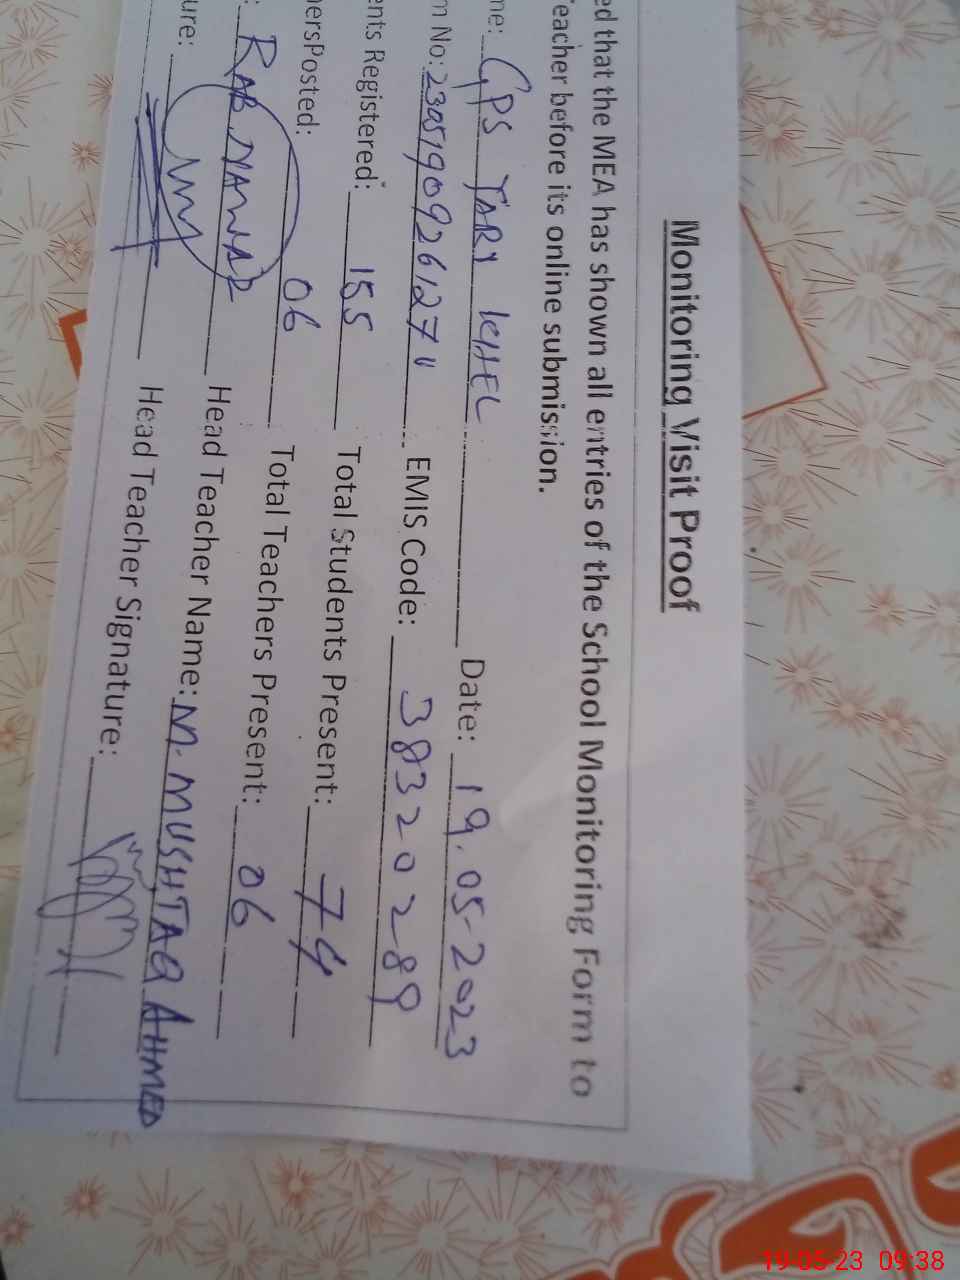 Monitoring Visit Proof
ed that the MEA has shown all entries of the School Monitoring Form to
Teacher before its online submission.
me: GPS YARI KHEL Date: 19.05-2023
m No: 23051909261270 EMIS Code: 38320289
ents Registered: 155 Total Students Present: 74
hersPosted: 06 Total Teachers Present: 06
: RAB NAWAZ Head Teacher Name: M. MUSHTAQ AHMED
ure: Head Teacher Signature:
19-05-23 09:38